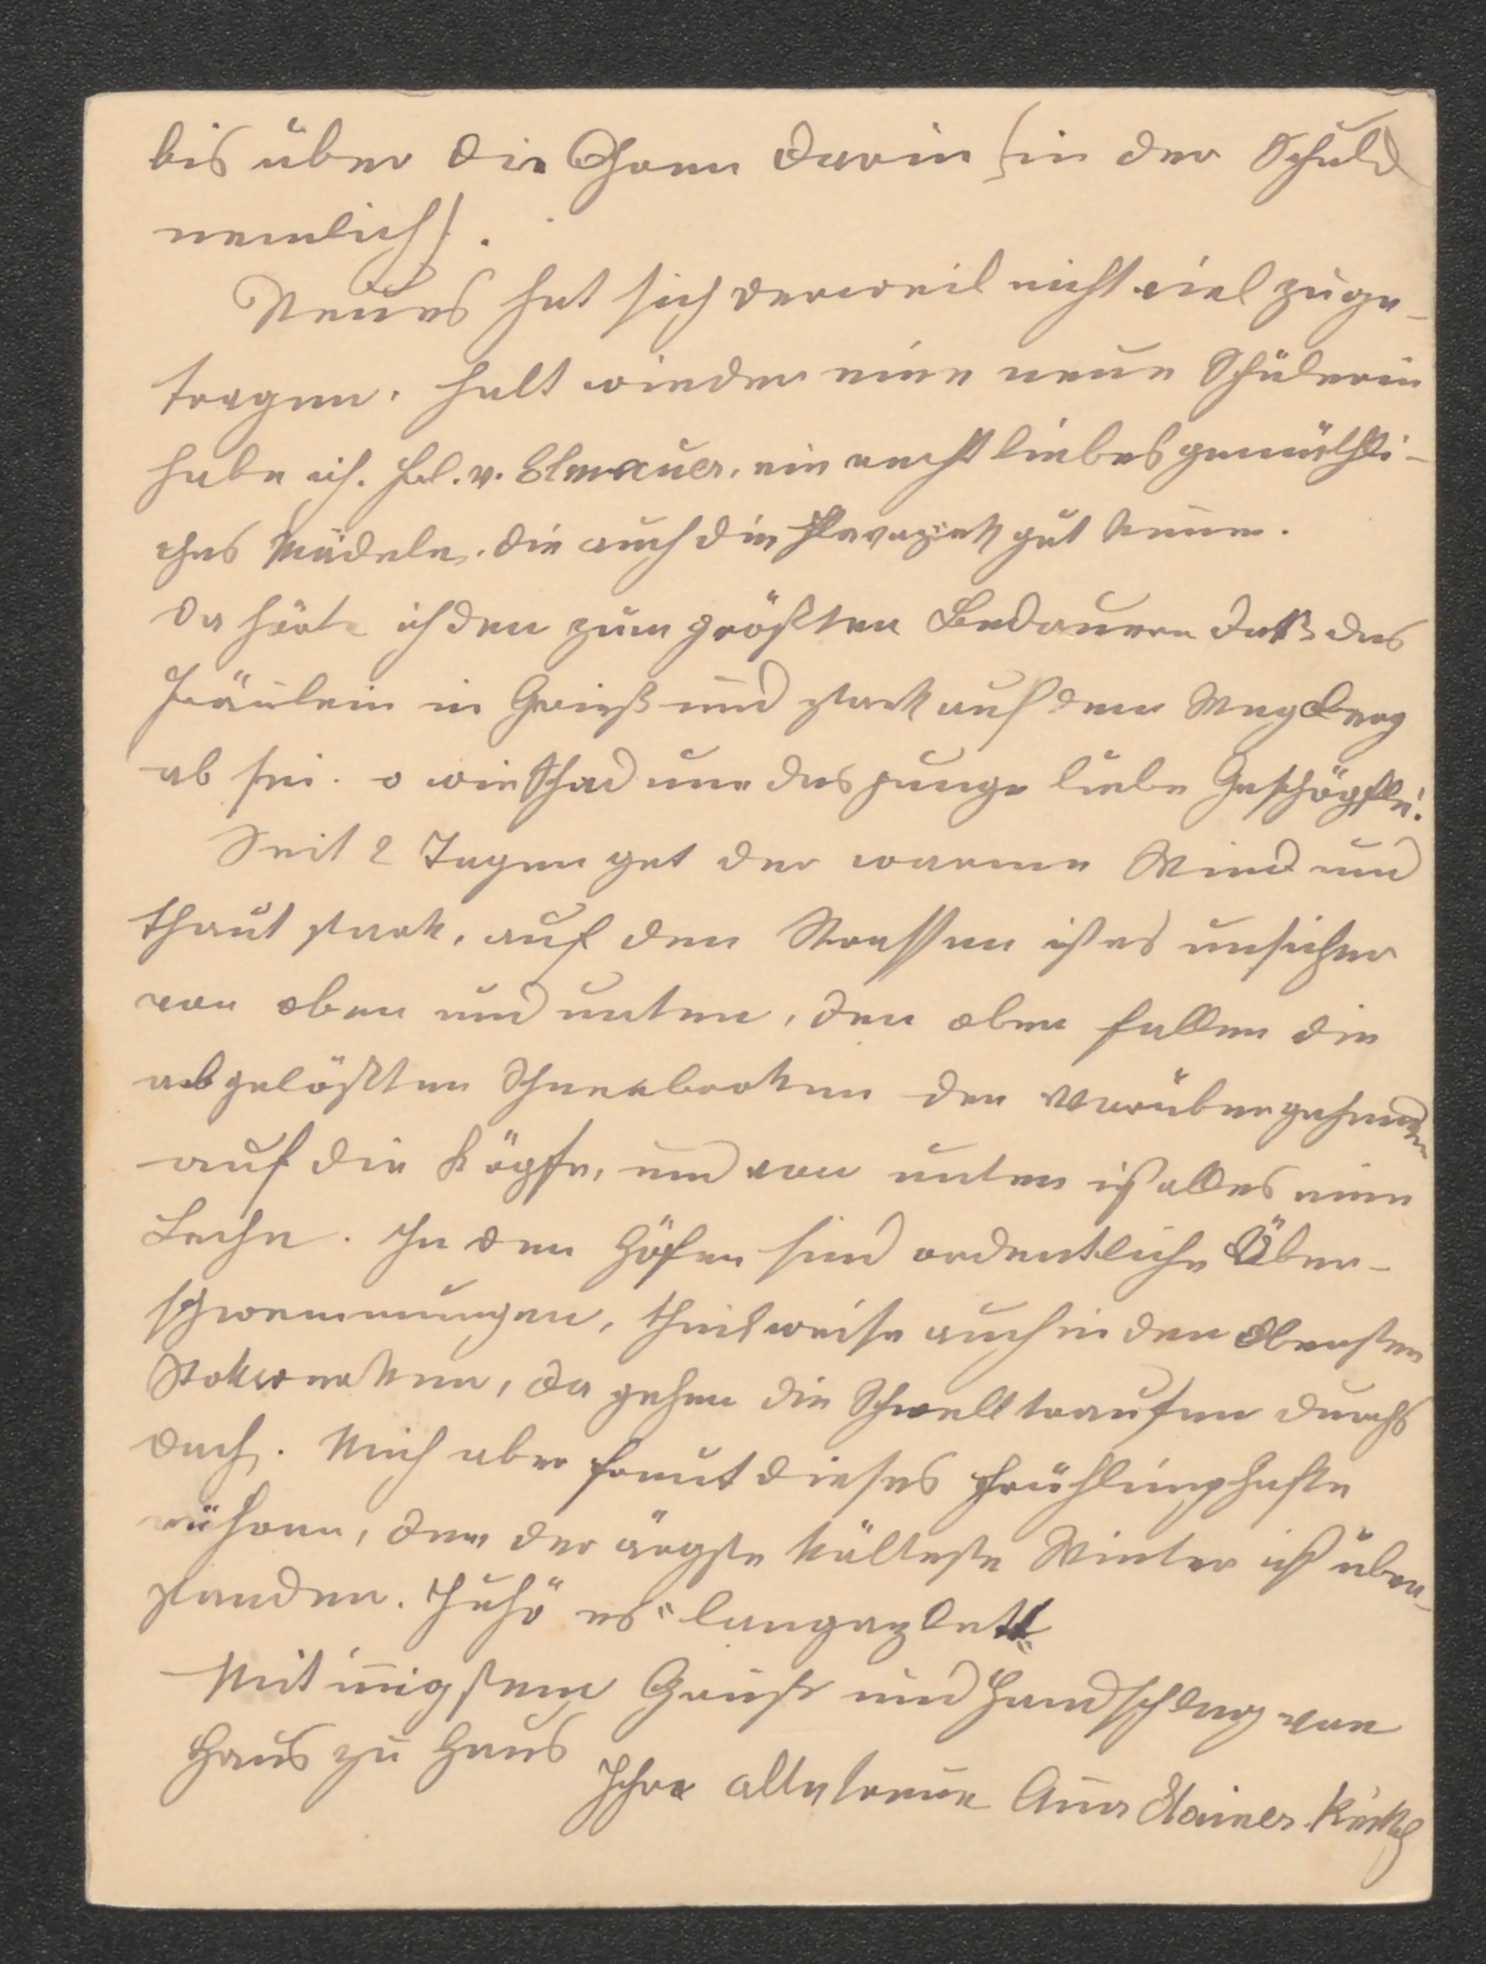 bis über die Ohren darin (in der Schuld
nemlich).
Neues hat sich derweil nicht viel zuge-
tragen. halt wieder eine neue Schülerin
habe ich. Frl. v. Elmauer, ein recht liebes gemüthli-
ches Mädele, die auch die gut kennt.
Da hörte ich den zum größten Bedauern daß das
Fräulein in Grieß und stark auf dem Weg
ab sei. o wie Schad um das junge liebe Geschöpfle.
Seit 2 Tagen get der warme Wind und
thaut stark. auf den Strassen ist es unsicher
von oben und unten, den oben fallen die
abgelösten Schneebrocken den Vorübergehenden
auf die Köpfe, und von unten ist alles eine
Lache. In den Höfen sind ordentliche Über-
schwemmungen, theilweise auch in den obersten
Stokwerken, da gehen die durchs
Dach. Mich aber freut dieses frühlinghafte
rühren, den der ärgste kälteste Winter ist über-
standen. Juhö es "langazelet"
Mit innigstem Gruße und Handschlag von
Haus zu Haus
Ihre alte treue Anna Stainer-Knittel